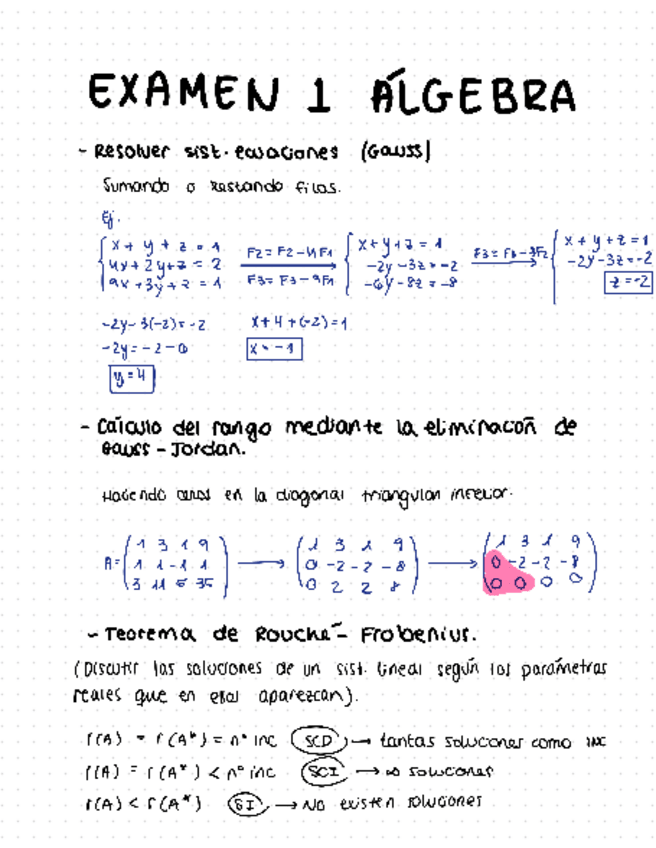 EXAMEN 1 ÁLGEBRA
- Resolver sist. ecuaciones (Gauss)
Sumando o restando filas.
Ej.
x + y + z = 1
4x + 2y + z = 2
9x + 3y + z = 1
F2 = F2 - 4F1
F3 = F3 - 9F1
x + y + z = 1
-2y - 3z = -2
-6y - 8z = -8
F3 = F3 - 3F2
x + y + z = 1
-2y - 3z = -2
z = -2
-2y - 3(-2) = -2
x + 4 + (-2) = 1
-2y = -2 - 6
x = -1
y = 4
- Cálculo del rango mediante la eliminación de
Gauss - Jordan.
Haciendo ceros en la diagonal triangular inferior.
A = ( 1 3 1 9
1 1 -1 1
3 11 5 35 )
( 1 3 1 9
0 -2 -2 -8
0 2 2 8 )
( 1 3 1 9
0 -2 -2 -8
0 0 0 0 )
- Teorema de Rouché - Frobenius.
(Discutir las soluciones de un sist. lineal según los parámetras
reales que en ellas aparezcan).
r(A) = r(A*) = nº inc (SCD) → tantas soluciones como inc
r(A) = r(A*) < nº inc (SCI) → ∞ soluciones
r(A) < r(A*) (SI) → No existen soluciones